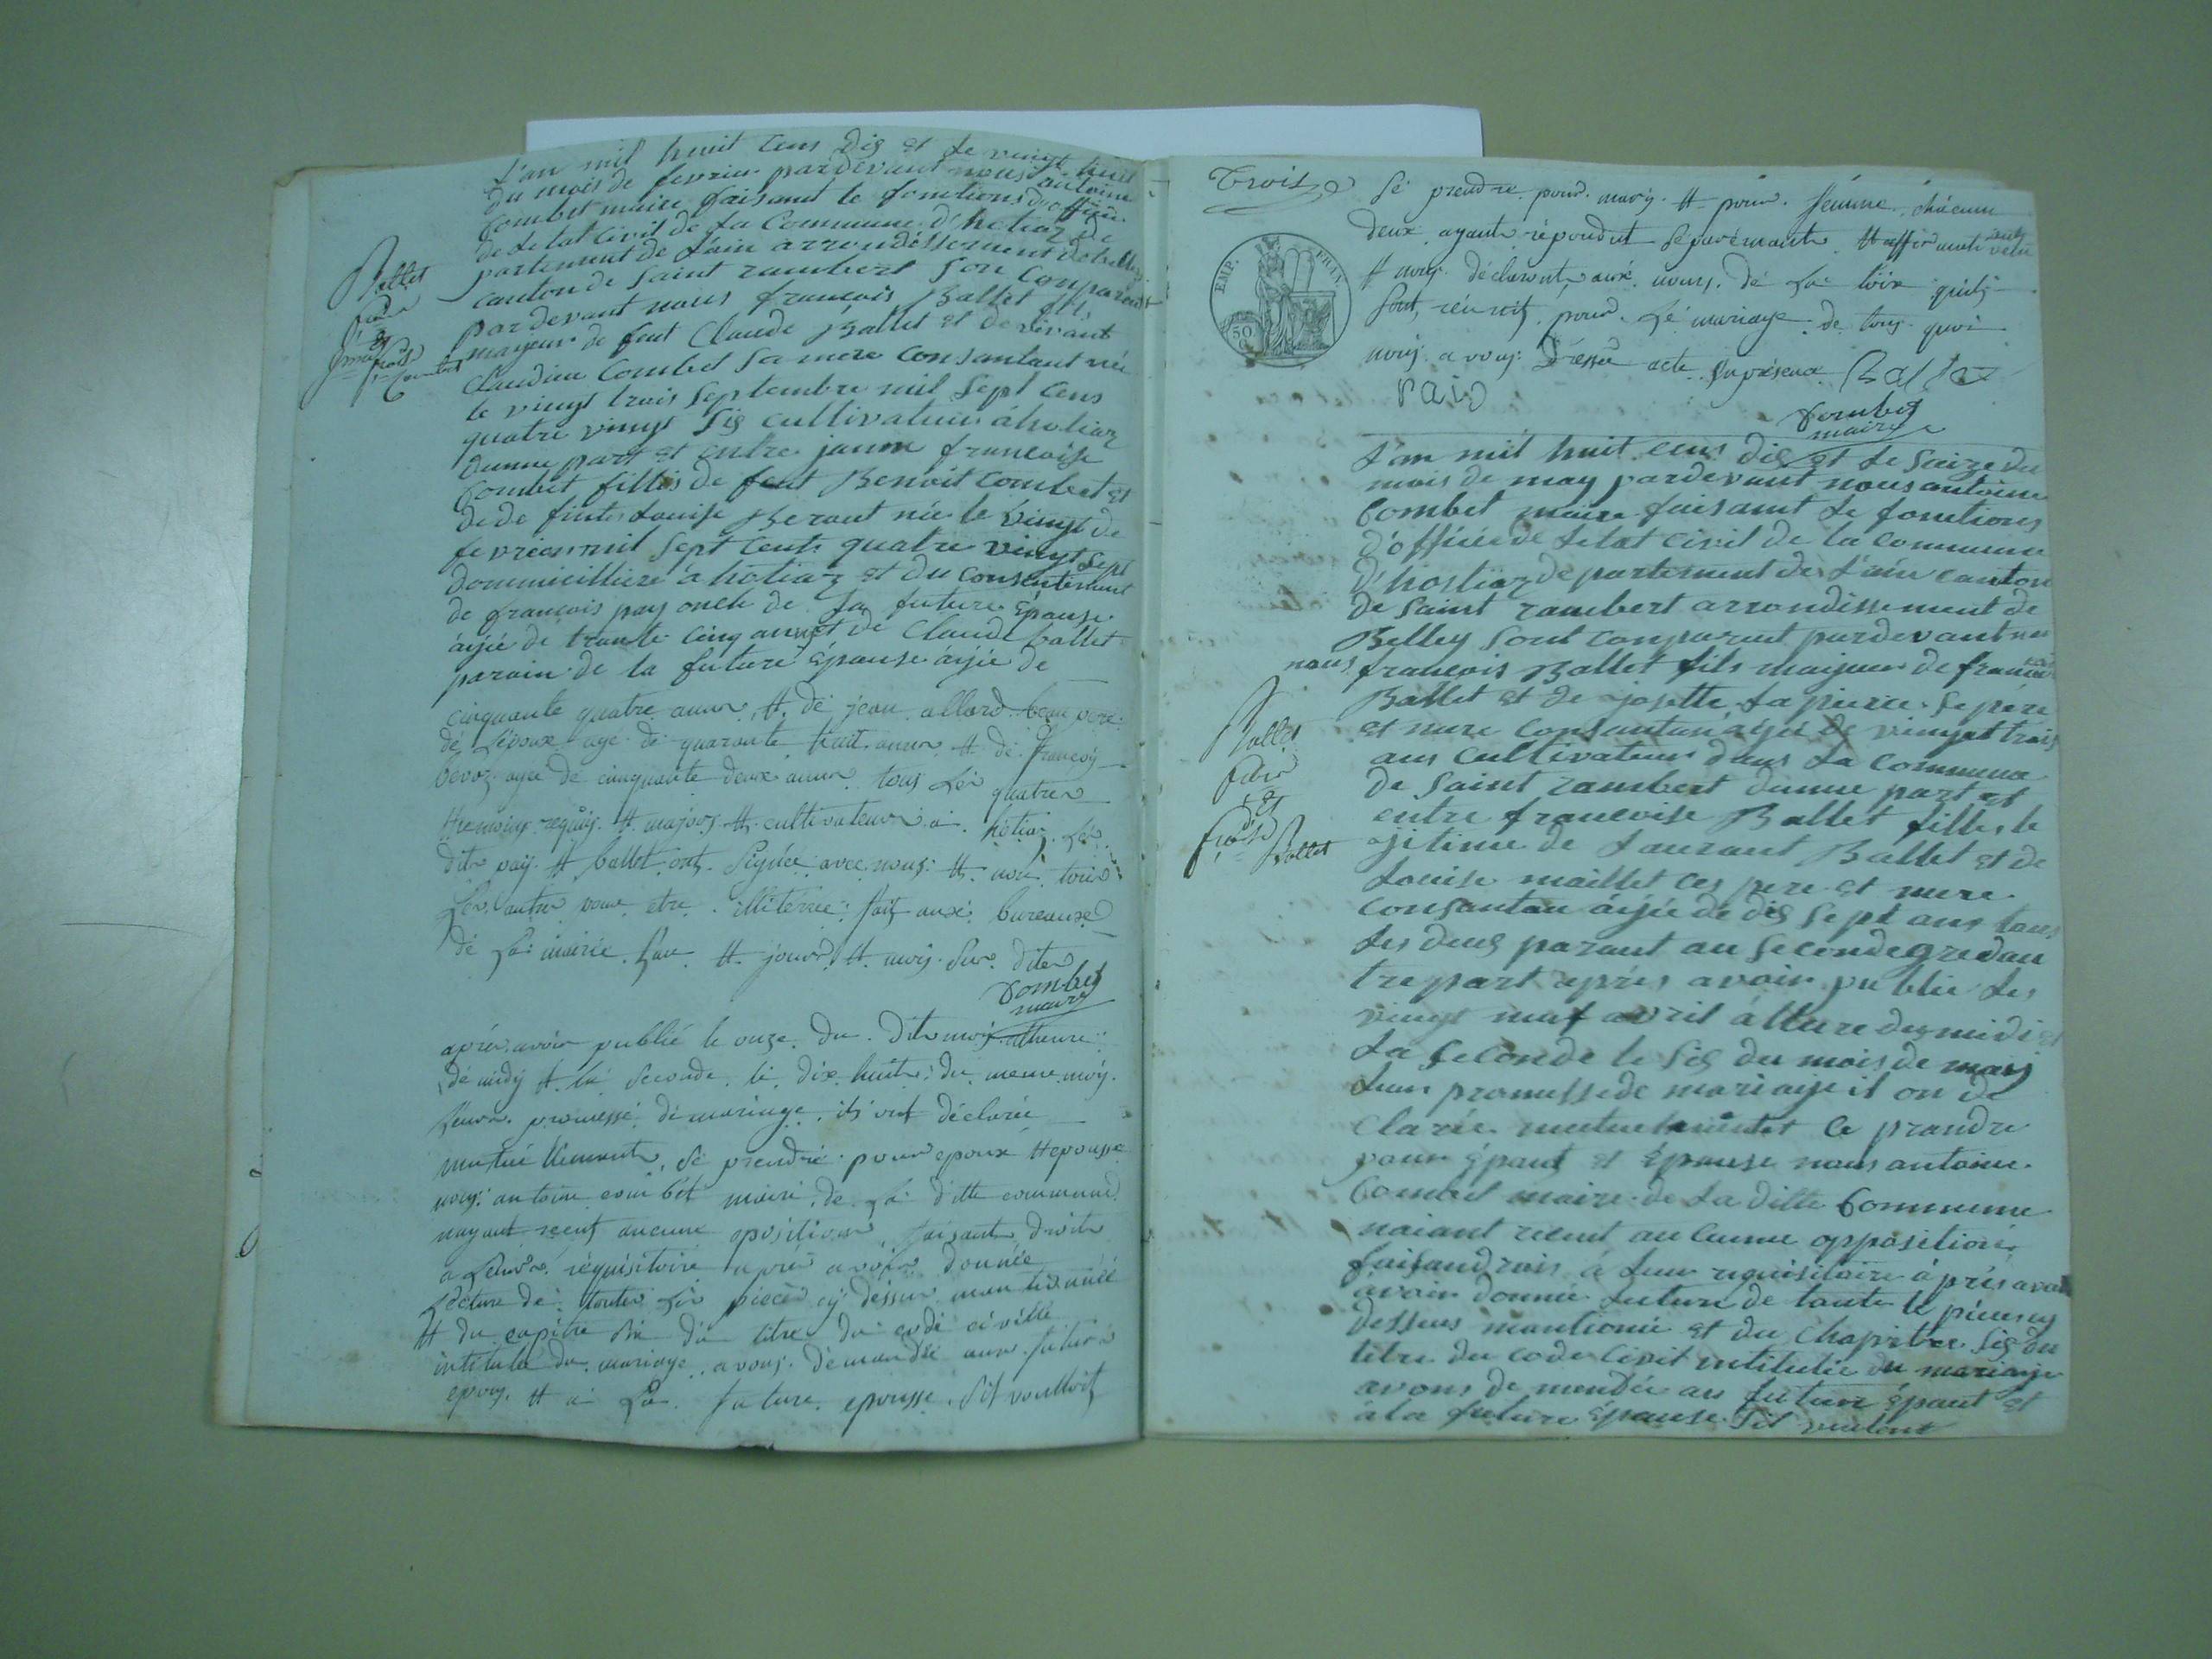 L'an mil huit cens dis et le vingt huit
du mois de fevrier pardevant nous antoine
Combet maire faisant le fonctions d'officier
de letat Civil de la Commune d'hotiaz de
partement de l'ain arrondissement de belley
canton de saint rambert son Comparus
pardevant nous francois Ballet fils
mayeur de feut Claude Ballet et de vivant
Claudine Combet sa mere consantant né
le vingt trois septembre mil sept cens
quatre vingt sis cultivateur á hotiaz
dunne part et entre janne francoise
Combet fillis de feut Benoit Combet et
de de finte Louise Beraut née le vingt de
fevrier mil sept cents quatre vingt sept
dommicilliere á hotiaz et du consentement
de francois pay oncle de la future Epouse
áijée de trante cinq ans et de Claude ballet
parain de la future épouse áijée de
cinquante quatre annr tt dé jean allard beau pere
dé Lépoux age dé quarante huit annr tt dé francoy
bevoz agée dé cinquante deux annr tous Lér quatrer
themoins réquis tt majors tt cultivateurr á hotiaz Lér
ditr pay tt ballet ont signée avec nous tt non toir
Lér autrer pour etre illiterée fait auxé bureauxr
dé La mairie Lan tt jour tt moy sur diter
Combet
maire
aprér avoir publié le onze du ditr moy a lheure
dé midy tt la seconde lé dix huitr du meme moy
Leurr promessé dé mariage ils ont déclarée
mutuéllement sé prendre pour epoux tt epousse
nous antoine combet mairé de La ditte commune
nayant recut aucune oposition faisant droitr
a Leurr réquisitoire aprér avoir donnée
Lécture dé toutér Lér piecér cy dessur mentionnéé
tt du capitre six du titre du codé civille
intitulé du mariage avons demandéé aur futur
epoux tt á La future epousse sils voulloit
Ballet
et
Combet
Troiz
sé prendre pour mary tt pour femme chácunr
deux ayant répondut séparémantr tt affirmativ
tt nous déclaront auxé nomy dé La loix quils
sont réunit pour Lé mariage de tous quoi
nous avons dressée acte En présence Ballet
Paiy
Combet
maire
EMP. FRAN.
50 C
L'an mil huit cens dis et le saize du
mois de may pardevant nous antoine
Combet maire faisant le fonctions
d'officie de letat civil de la commune
d'hostiaz departement de l'ain canton
de saint rambert arrondissement de
Belley sont comparut pardevant
nous francois Ballet fils maijeur de francois
Ballet et de josette la pierre se pére
et mere consantan áijée de vingt trois
ans cultivateur dans la commune
de saint rambert dunne part et
entre francoise Ballet fille le
ojitime de Laurant Ballet et de
Louise maillet ces pere et mere
consantan áijée de dis sept ans tous
les deus parant au seconde gre dau
tre part aprés avoir publié les
vingt nuf avril á lheure de midi et
la seconde le sis du mois de may
leur promesse de mariage il on de
clarée mutuelement ce prandre
pour Epaus et Epouse nous antoine
Combet maire de la ditte Commune
naiant recut aucunne opposition
faisandrois á leur requisitoire áprés avoir
ávoir donnée lecture de toute le piece cy
dessus mantionnée et du Chapitre sis du
titre du code civit intitulée du mariaje
avons demandée au future épaut et
á la future épouse sil veulent
Ballet
et
Ballet